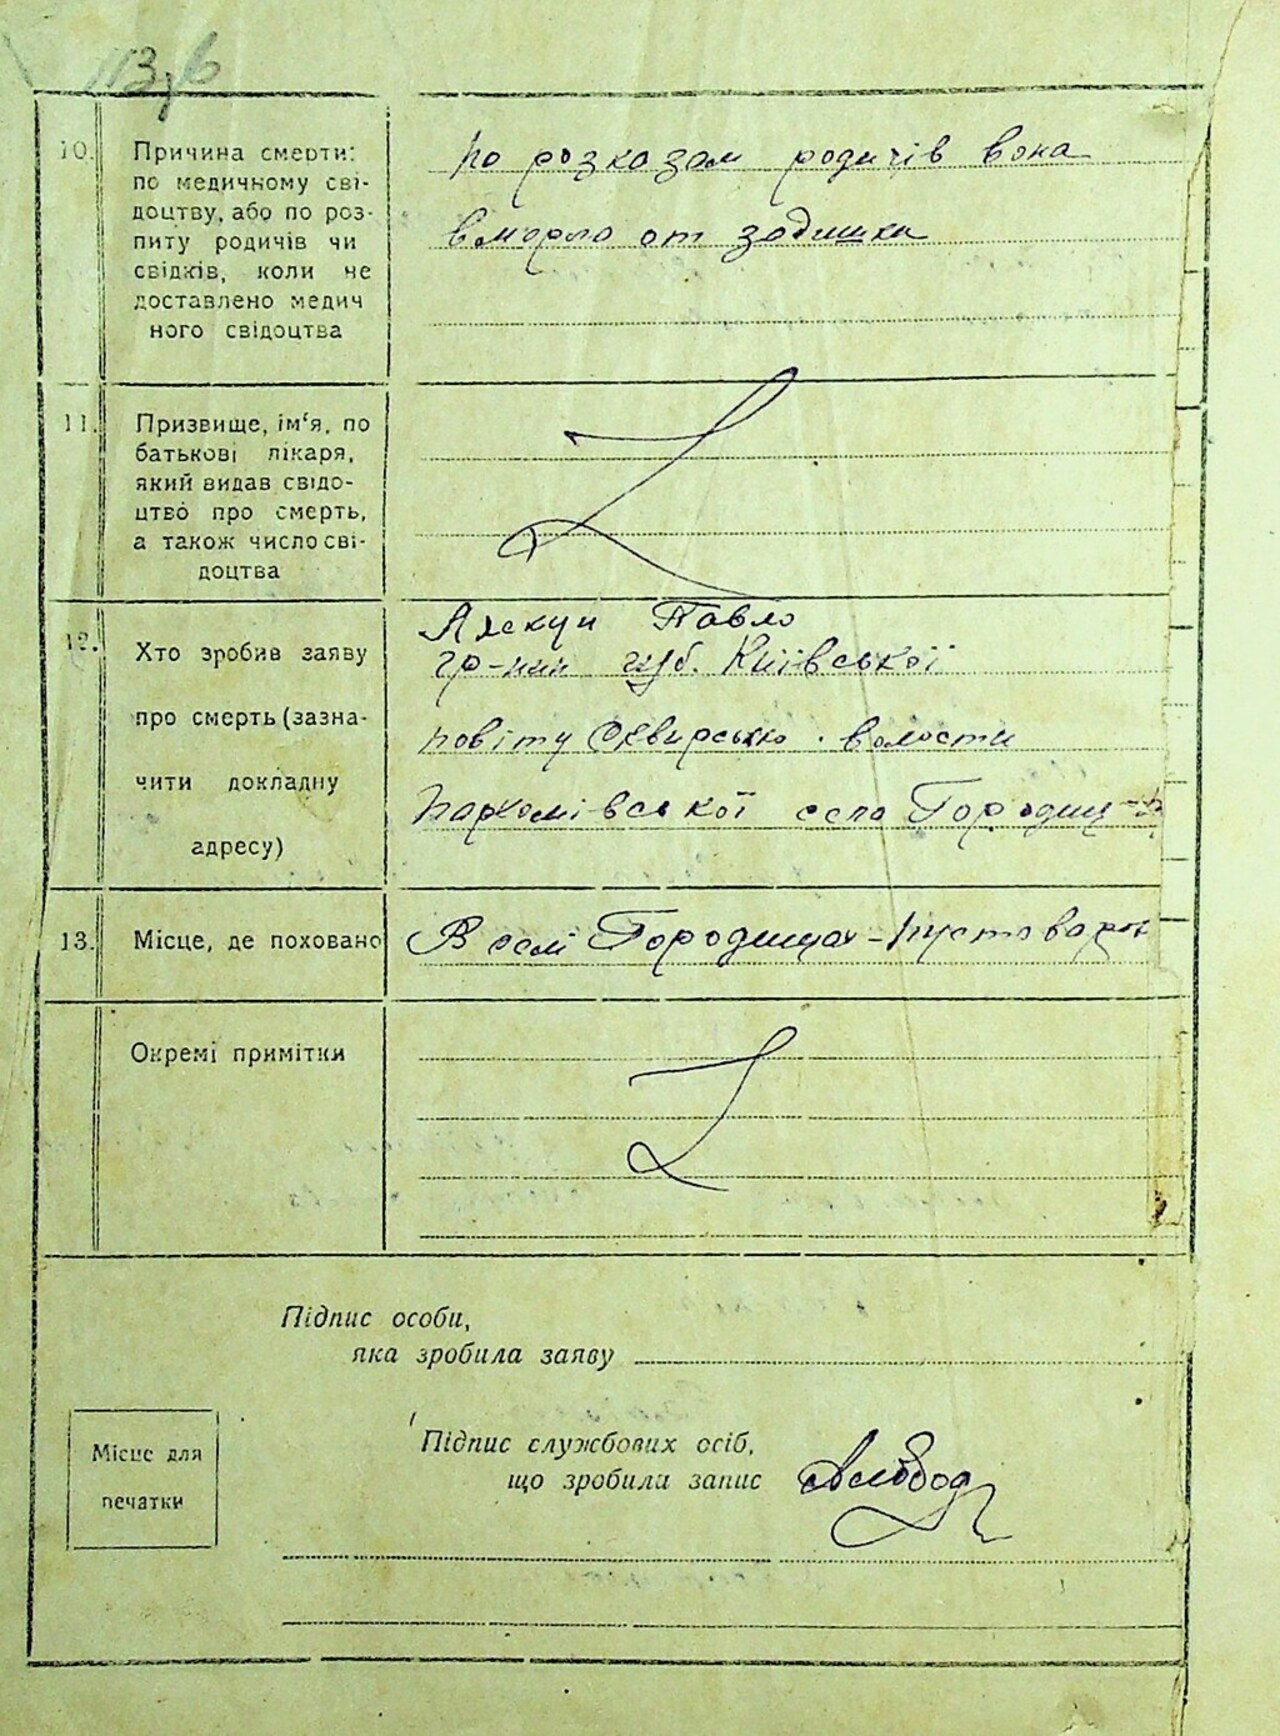 113,б
10.
Причина смерти:
по медичному сві-
доцтву, або по роз-
питу родичів чи
свідків, коли не
доставлено медич
ного свідоцтва
по розказам родичів вона
вмерла от задишки
11.
Призвище, ім‘я, по
батькові лікаря,
який видав свідо-
цтво про смерть,
а також число сві-
доцтва
12.
Хто зробив заяву
про смерть (зазна-
чити докладну
адресу)
Павло
гр-нин губ. Київської
повіту Сквирсько. волости
Пархомівської села
13.
Місце, де поховано
В селі Городищах-Пустоварох
Окремі примітки
Підпис особи,
яка зробила заяву
Місце для
печатки
Підпис службових осіб,
що зробили запис